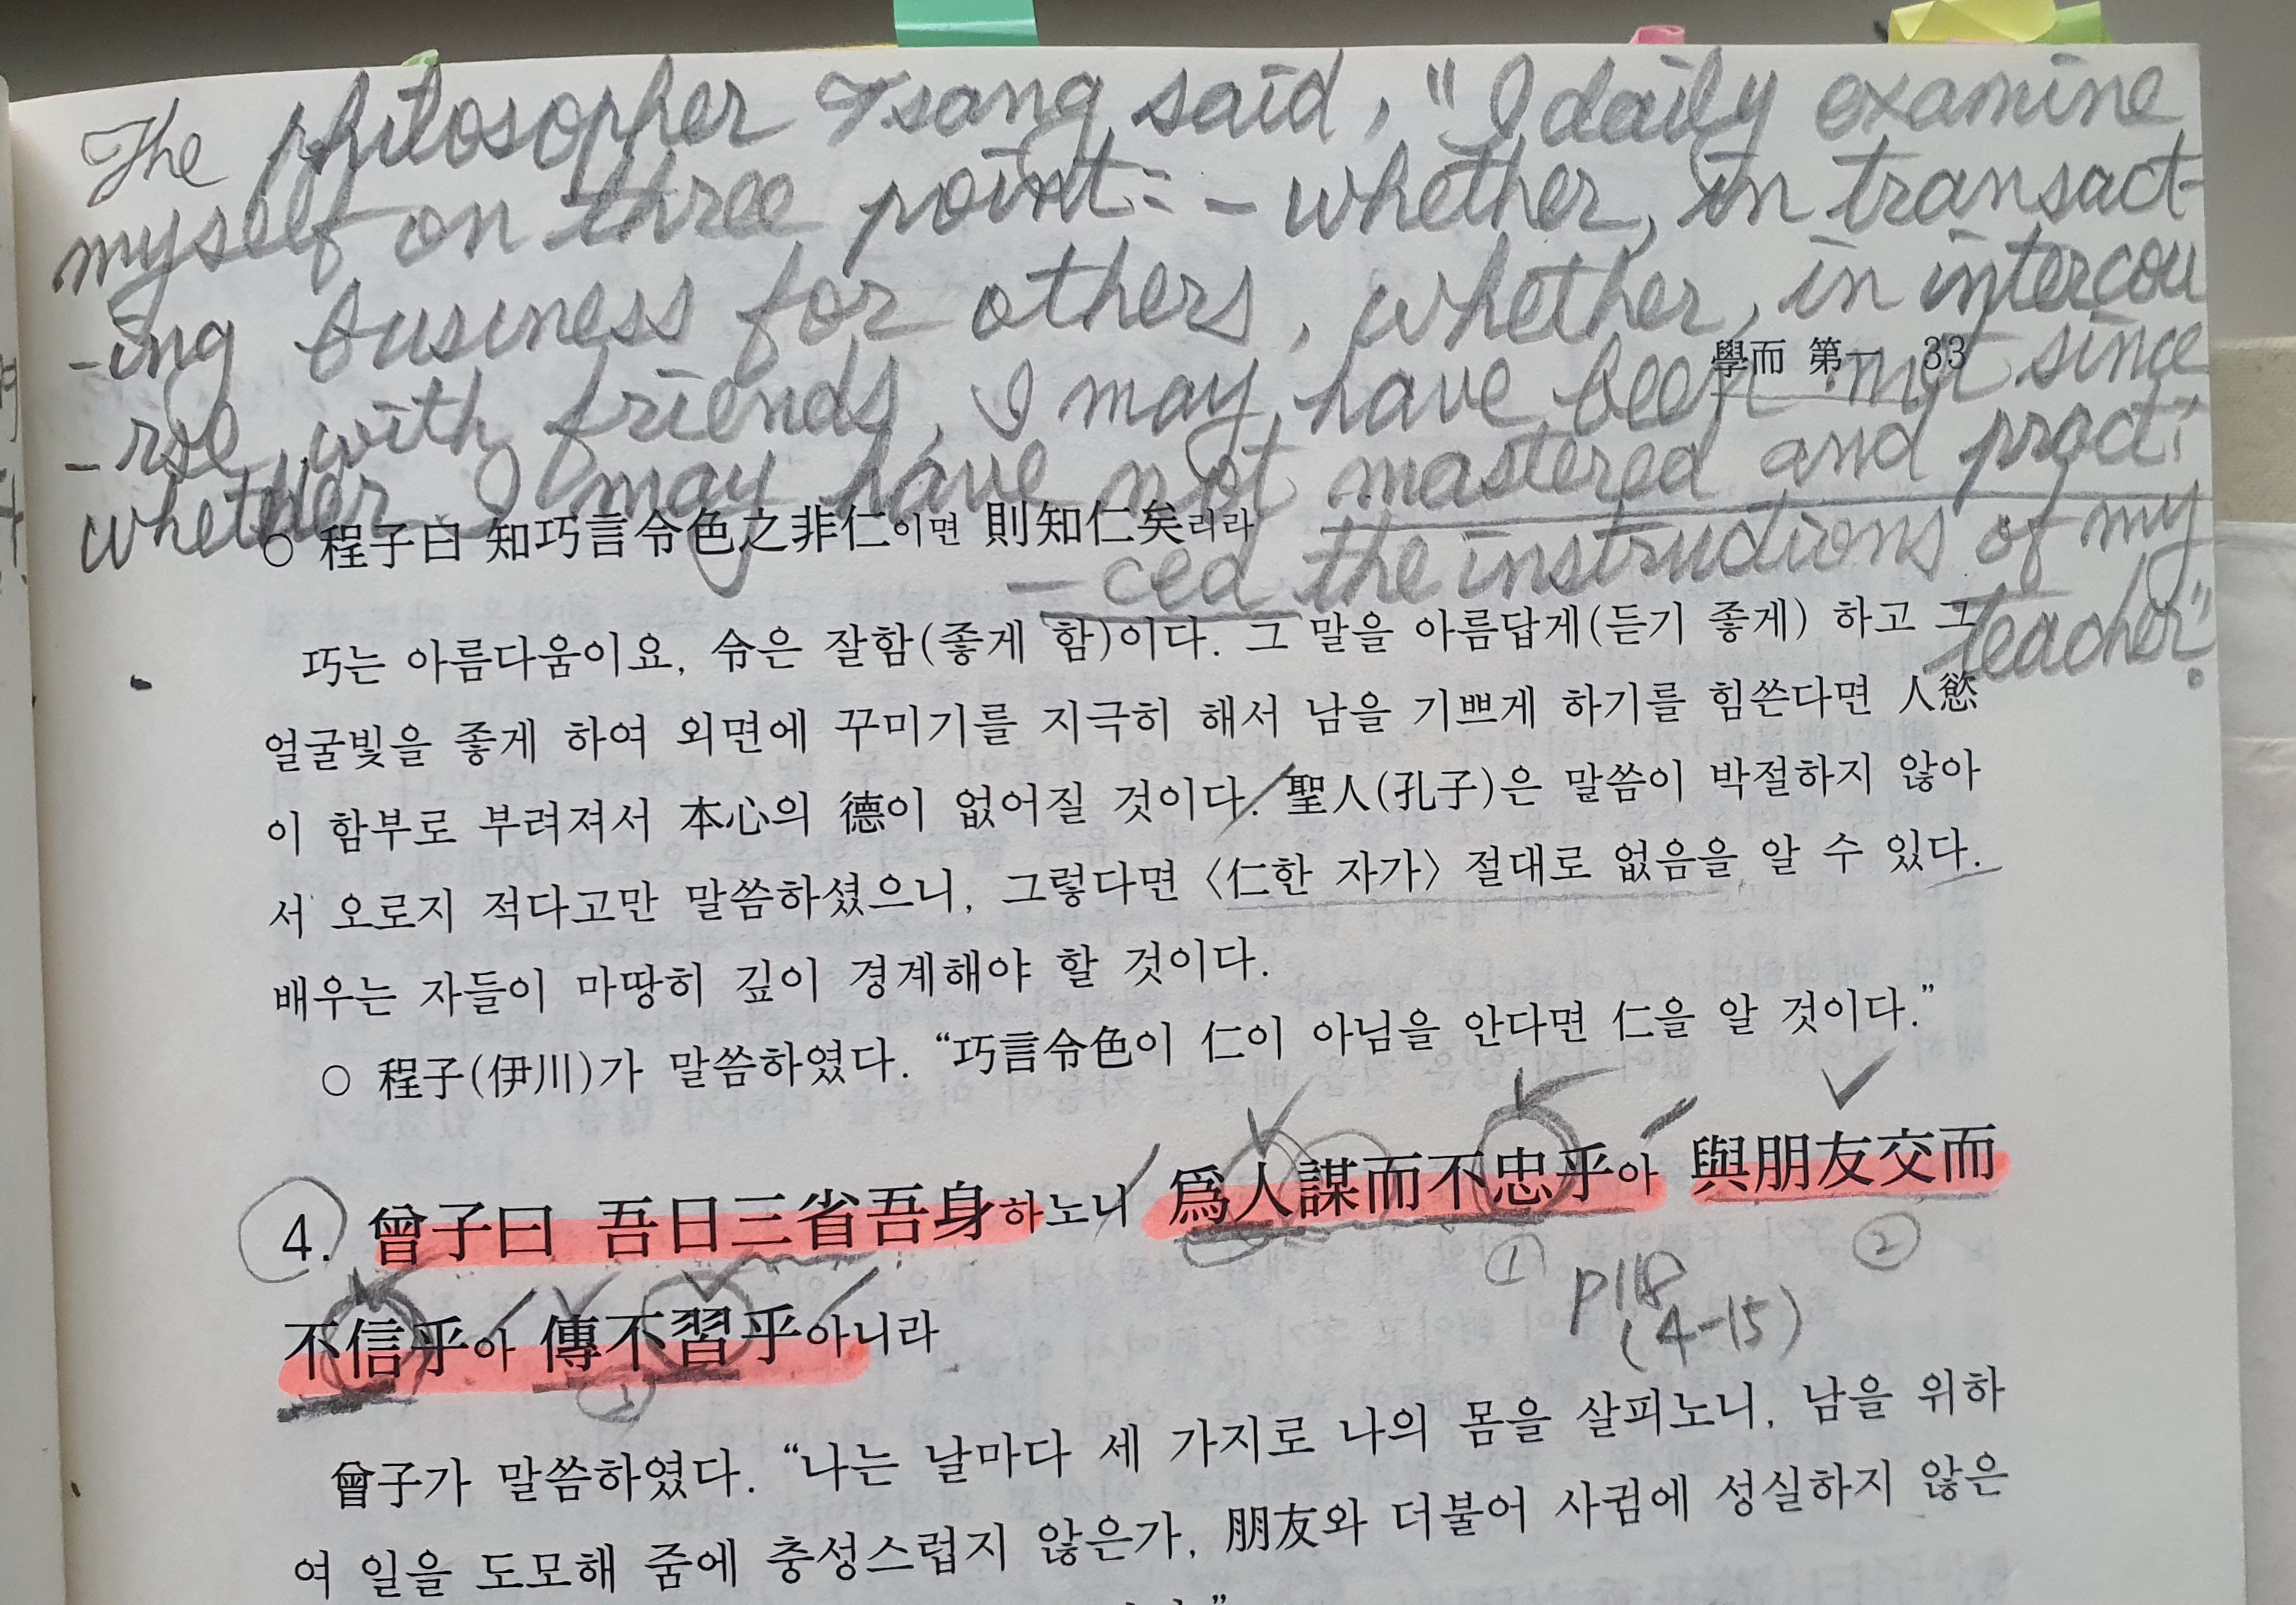 The philosopher Tsang said, "I daily examine
myself on three point: - whether, in transact-
-ing business for others, whether, in intercou
-rse, with friends, I may have been not since
whether I may have not mastered and practi
-ced the instructions of my
teacher."
學而 第一 33
○ 程子曰 知巧言令色之非仁이면 則知仁矣리라
巧는 아름다움이요, 令은 잘함(좋게 함)이다. 그 말을 아름답게(듣기 좋게) 하고 그
얼굴빛을 좋게 하여 외면에 꾸미기를 지극히 해서 남을 기쁘게 하기를 힘쓴다면 人慾
이 함부로 부려져서 本心의 德이 없어질 것이다. 聖人(孔子)은 말씀이 박절하지 않아
서 오로지 적다고만 말씀하셨으니, 그렇다면 〈仁한 자가〉 절대로 없음을 알 수 있다.
배우는 자들이 마땅히 깊이 경계해야 할 것이다.
○ 程子(伊川)가 말씀하였다. “巧言令色이 仁이 아님을 안다면 仁을 알 것이다.”
4. 曾子曰 吾日三省吾身하노니 爲人謀而不忠乎아 與朋友交而
① ②
p18
(4-15)
不信乎아 傳不習乎아니라
曾子가 말씀하였다. “나는 날마다 세 가지로 나의 몸을 살피노니, 남을 위하
여 일을 도모해 줌에 충성스럽지 않은가, 朋友와 더불어 사귐에 성실하지 않은